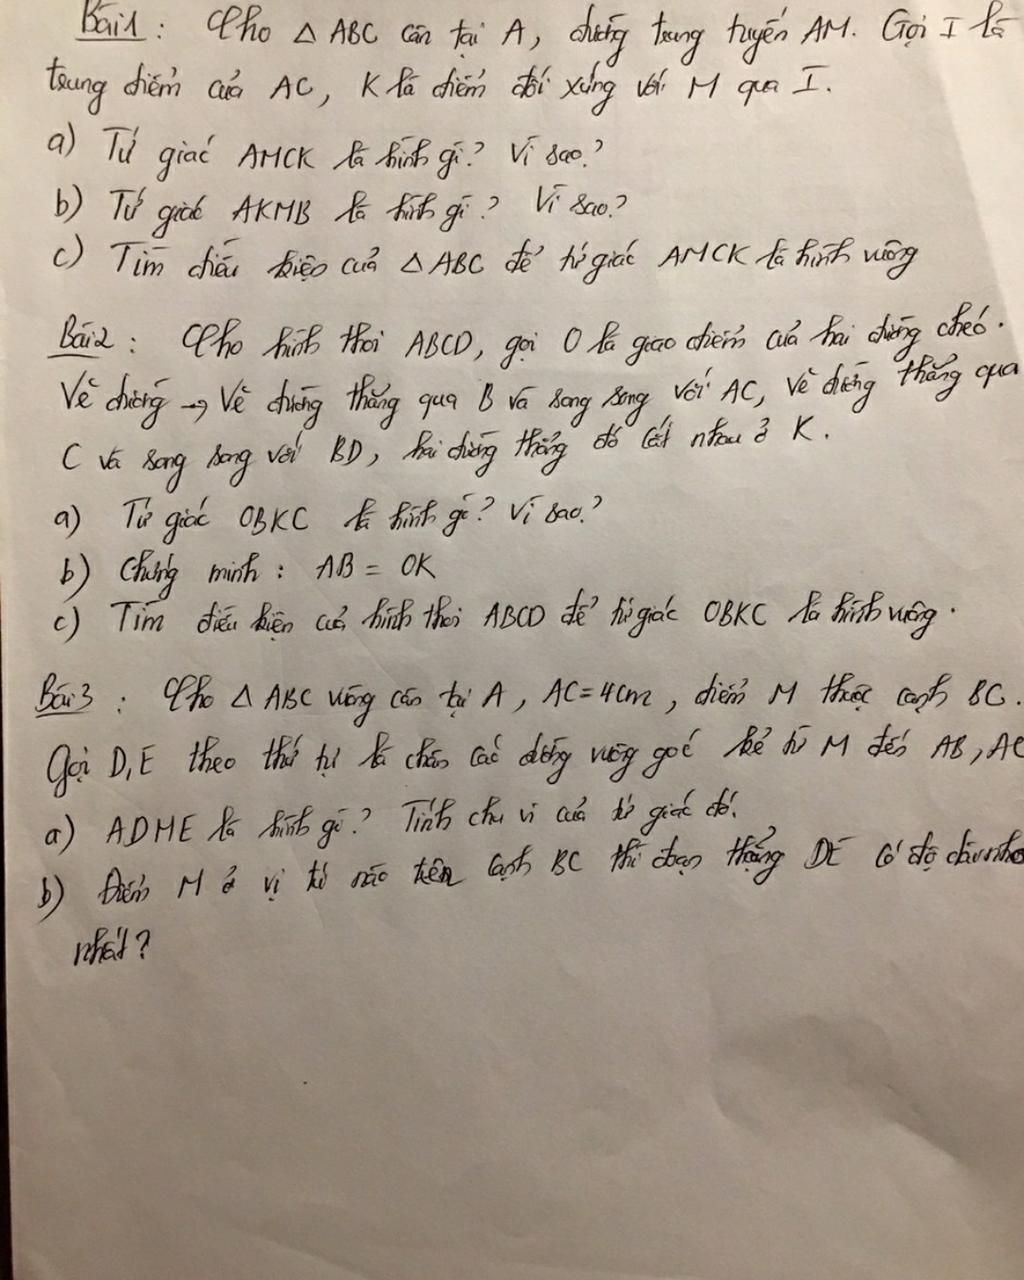 Bài 1 : Cho △ ABC cân tại A, đường trung tuyến AM. Gọi I là
trung điểm của AC, K là điểm đối xứng với M qua I.
a) Tứ giác AMCK là hình gì? Vì sao?
b) Tứ giác AKMB là hình gì? Vì sao?
c) Tìm điều kiện của △ ABC để tứ giác AMCK là hình vuông
Bài 2 : Cho hình thoi ABCD, gọi O là giao điểm của hai đường chéo.
Vẽ đường → Vẽ đường thẳng qua B và song song với AC, vẽ đường thẳng qua
C và song song với BD, hai đường thẳng đó cắt nhau ở K.
a) Tứ giác OBKC là hình gì? Vì sao?
b) Chứng minh : AB = OK
c) Tìm điều kiện của hình thoi ABCD để tứ giác OBKC là hình vuông.
Bài 3 : Cho △ ABC vuông cân tại A, AC = 4cm, điểm M thuộc cạnh BC.
Gọi D, E theo thứ tự là chân các đường vuông góc kẻ từ M đến AB, AC
a) ADME là hình gì? Tính chu vi của tứ giác đó.
b) Điểm M ở vị trí nào trên cạnh BC thì đoạn thẳng DE có độ dài nhỏ
nhất?